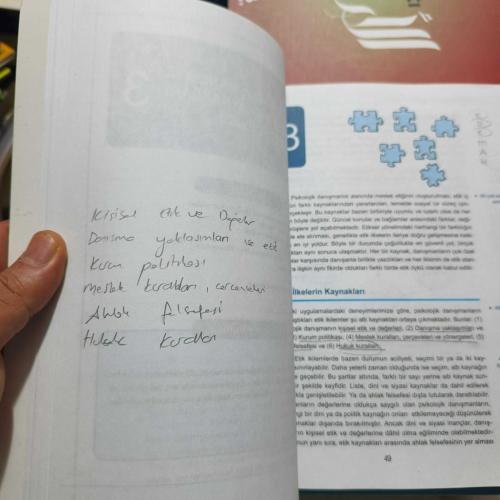 Kişisel etik ve Değerler
Danışma yaklaşımları ve etik
Kurum politikası
Meslek kuralları, çerçeveleri
Ahlak felsefesi
Hukuk kuralları
3
Psikolojik danışmanlık alanında meslek etiğinin oluşturulması, etik
farklı kaynaklarından yararlanılan, temelde sosyal bir süreç
Bu kaynaklar bazen birbiriyle uyumlu ve tutarlı olsa da her
böyle değildir. Güncel konular ve bağlamlar arasındaki farklar,
yol açabilmektedir. Etiksel yönelimdeki herhangi bir farklılığın
ele alınması, genellikle etik ilkelerin ileriye doğru gelişmesine
en iyi yoldur. Böyle bir durumda çoğunlukla en güvenli yol, birçok
aynı sonuca ulaşmaktır. Her bir kaynak, danışmanların çok özel
karşısında danışanla birlikte yazdıkları ve her ilkenin de etik
ilişkin aynı fikirde oldukları farklı türde etik öykü olarak kabul
İlkelerin Kaynakları
uygulamalardaki deneyimlerimize göre, psikolojik danışmanların
etik ikilemler şu altı kaynaktan ortaya çıkmaktadır. Bunlar: (1)
danışmanın kişisel etik ve değerleri, (2) Danışma yaklaşımları ve
(3) Kurum politikası, (4) Meslek kuralları, çerçeveleri ve yönergeleri, (5)
felsefesi ve (6) Hukuk kuralları.
Etik ikilemlerde bazen durumun aciliyeti, seçimi bir ya da iki
sınırlayabilir. Daha yeterli zaman olduğunda ise seçim, altı kaynağın
geçebilir. Bu şartlar altında, farklı bir sayı yerine altı kaynak
şekilde keyfidir. Liste, dini ve siyasi kaynaklar da dahil edilerek
genişletilebilir. Ya da ahlak felsefesi dışta tutularak daraltılabilir.
değerlerine oldukça saygılı olan psikolojik danışmanların,
bir dini ya da politik kaynağın onları etkilemeyeceği düşünülerek
dışarıda bırakılmıştır. Ancak dini ve siyasi inançlar,
kişisel etik ve değerlerine dâhil olma eğiliminde olabilmektedir.
yanı sıra, etik kaynakları arasında ahlak felsefesinin yer alması
49